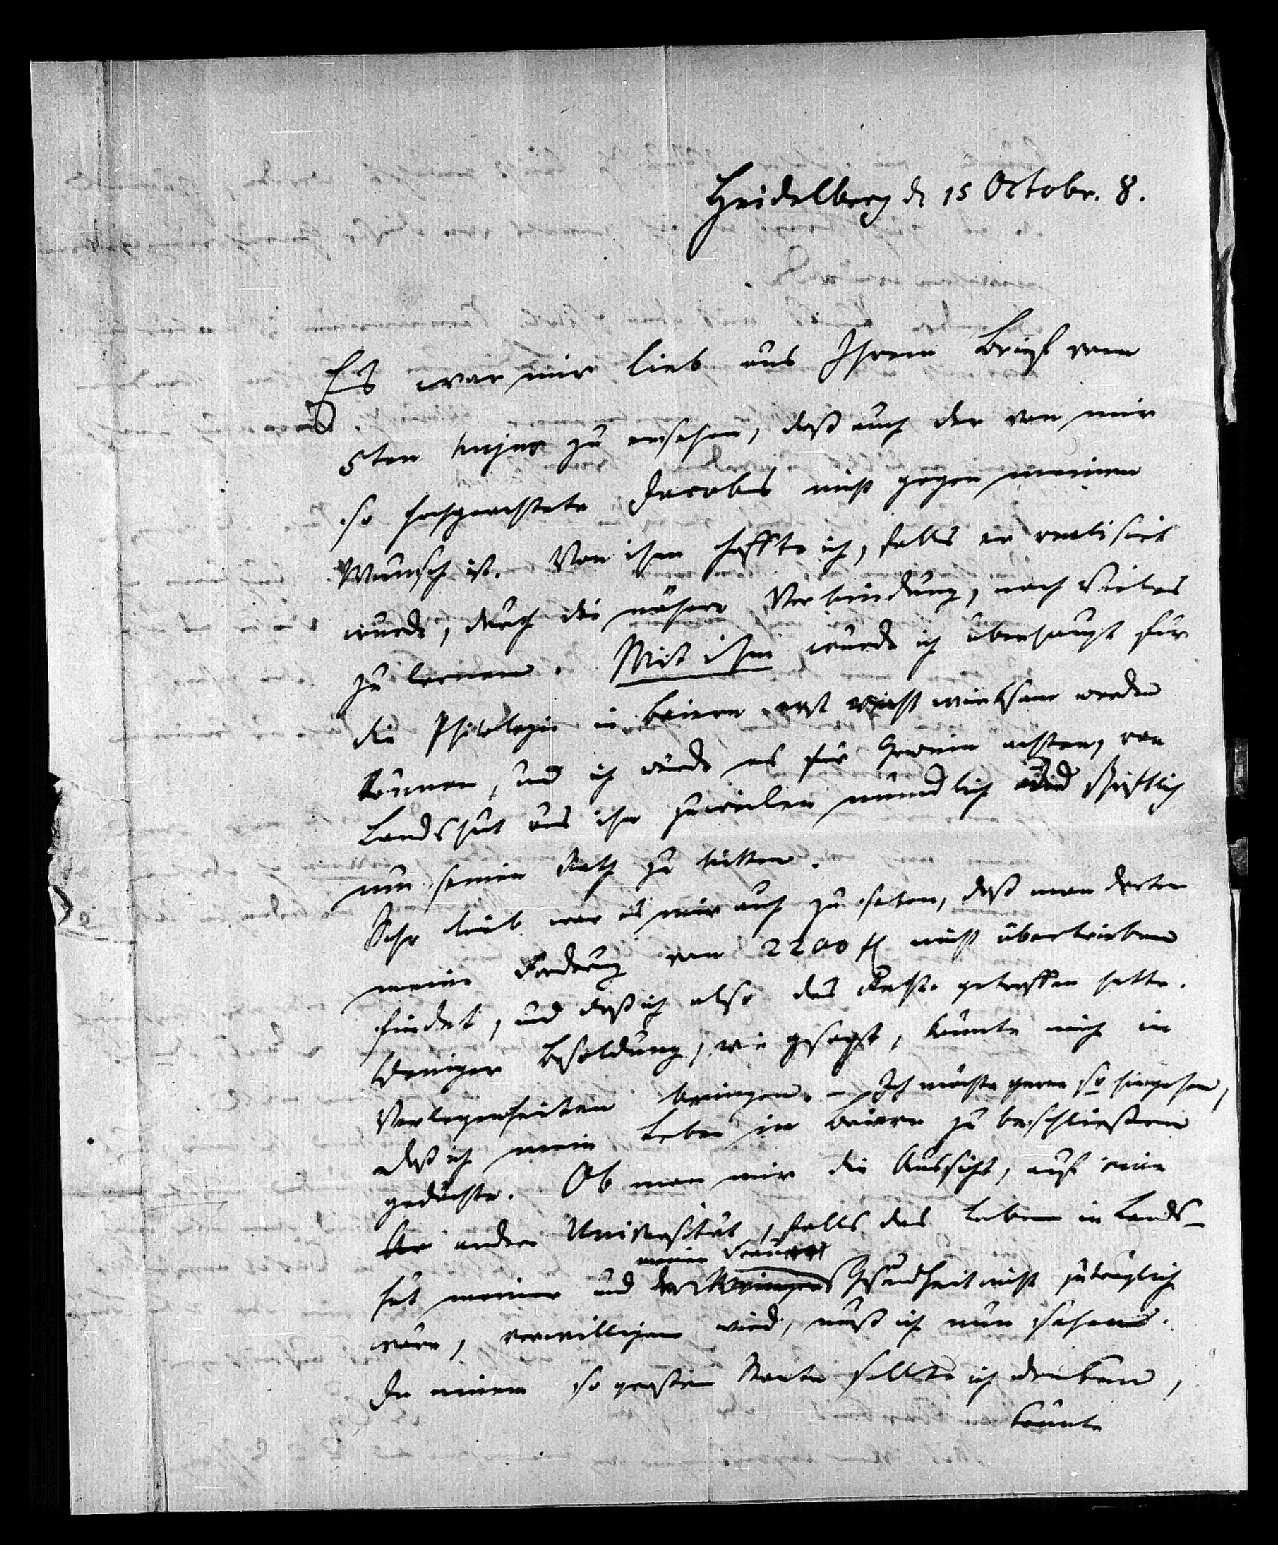 Heidelberg d 15 Octobr. 8.
Es war mir lieb aus Ihrem Brief vom
5ten hujus zu ersehen, daß auch der von mir
so hochgeachtete Jacobs nicht gegen meinen
Wunsch ist. Von ihm hoffte ich, falls er realisirt
wurde, durch die nähere Verbindung, noch Vieles
zu lernen. Mit ihm würde ich überhaupt für
die Philologie in Baiern erst recht wirksam werden
können, und ich würde es für Gewinn achten, von
Landshut aus ihn zuweilen mündlich und schriftlich
um seinen Rath zu bitten.
Sehr lieb war es mir auch zu sehen, daß man dorten
meine Forderung von 2200 fl nicht übertrieben
findet, und daß ich also das Rechte getroffen hatte.
Weniger Besoldung, wie gesagt, könnte mich in
Verlegenheiten bringen. – Ich möchte gerne so hingehen,
daß ich mein Leben in Baiern zu beschließen
gedächte. Ob man mir die Aussicht, auf eine
andere Universität, falls das Leben in Lands-
meiner Frauen
hut meiner und der Gesundheit nicht zuträglich
wäre, verwilligen wird, muß ich nun sehen.
In einem so großen Staate sollte ich denken,
könnte